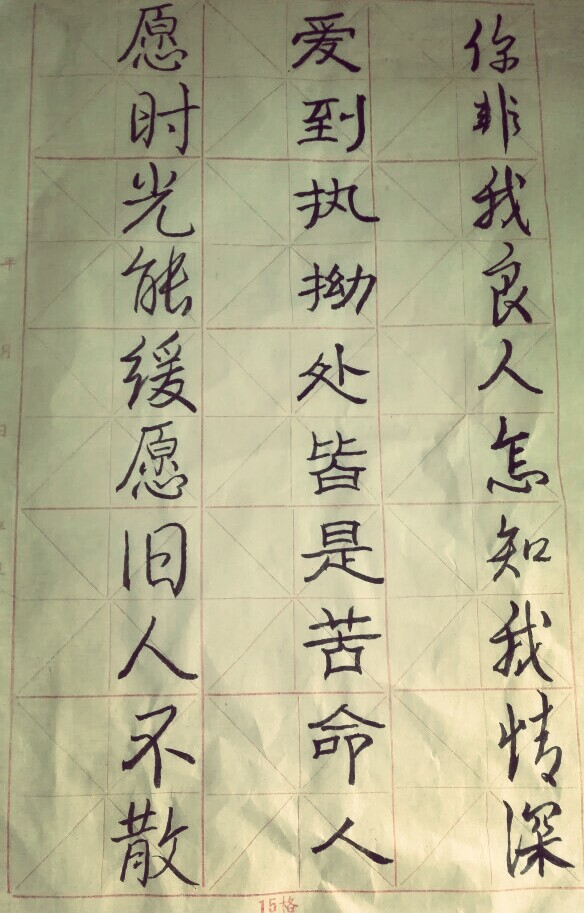 你非我良人怎知我情深
爱到执拗处皆是苦命人
愿时光能缓愿旧人不散
15格